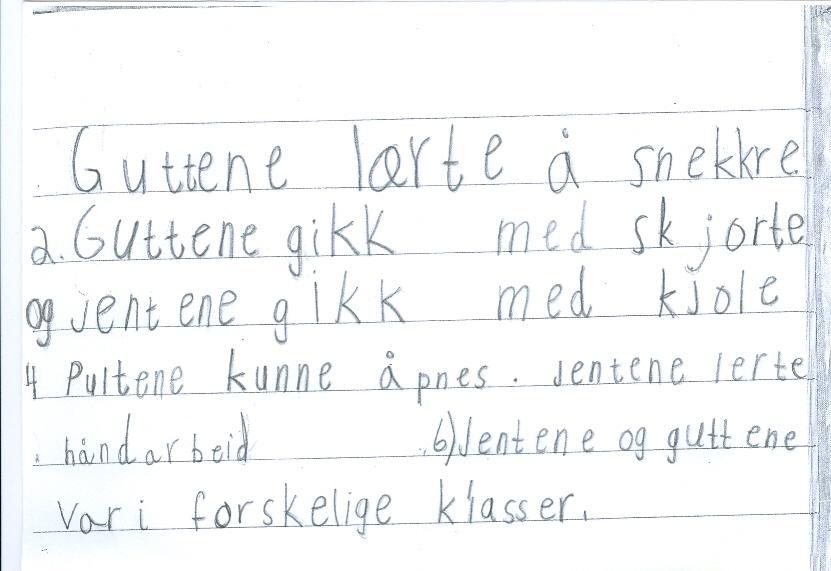 Guttene lærte å snekkre
2. Guttene gikk med skjorte
og jentene gikk med kjole
4 Pultene kunne åpnes. Jentene lerte
. håndarbeid .6) Jentene og guttene
var i forskelige klasser.